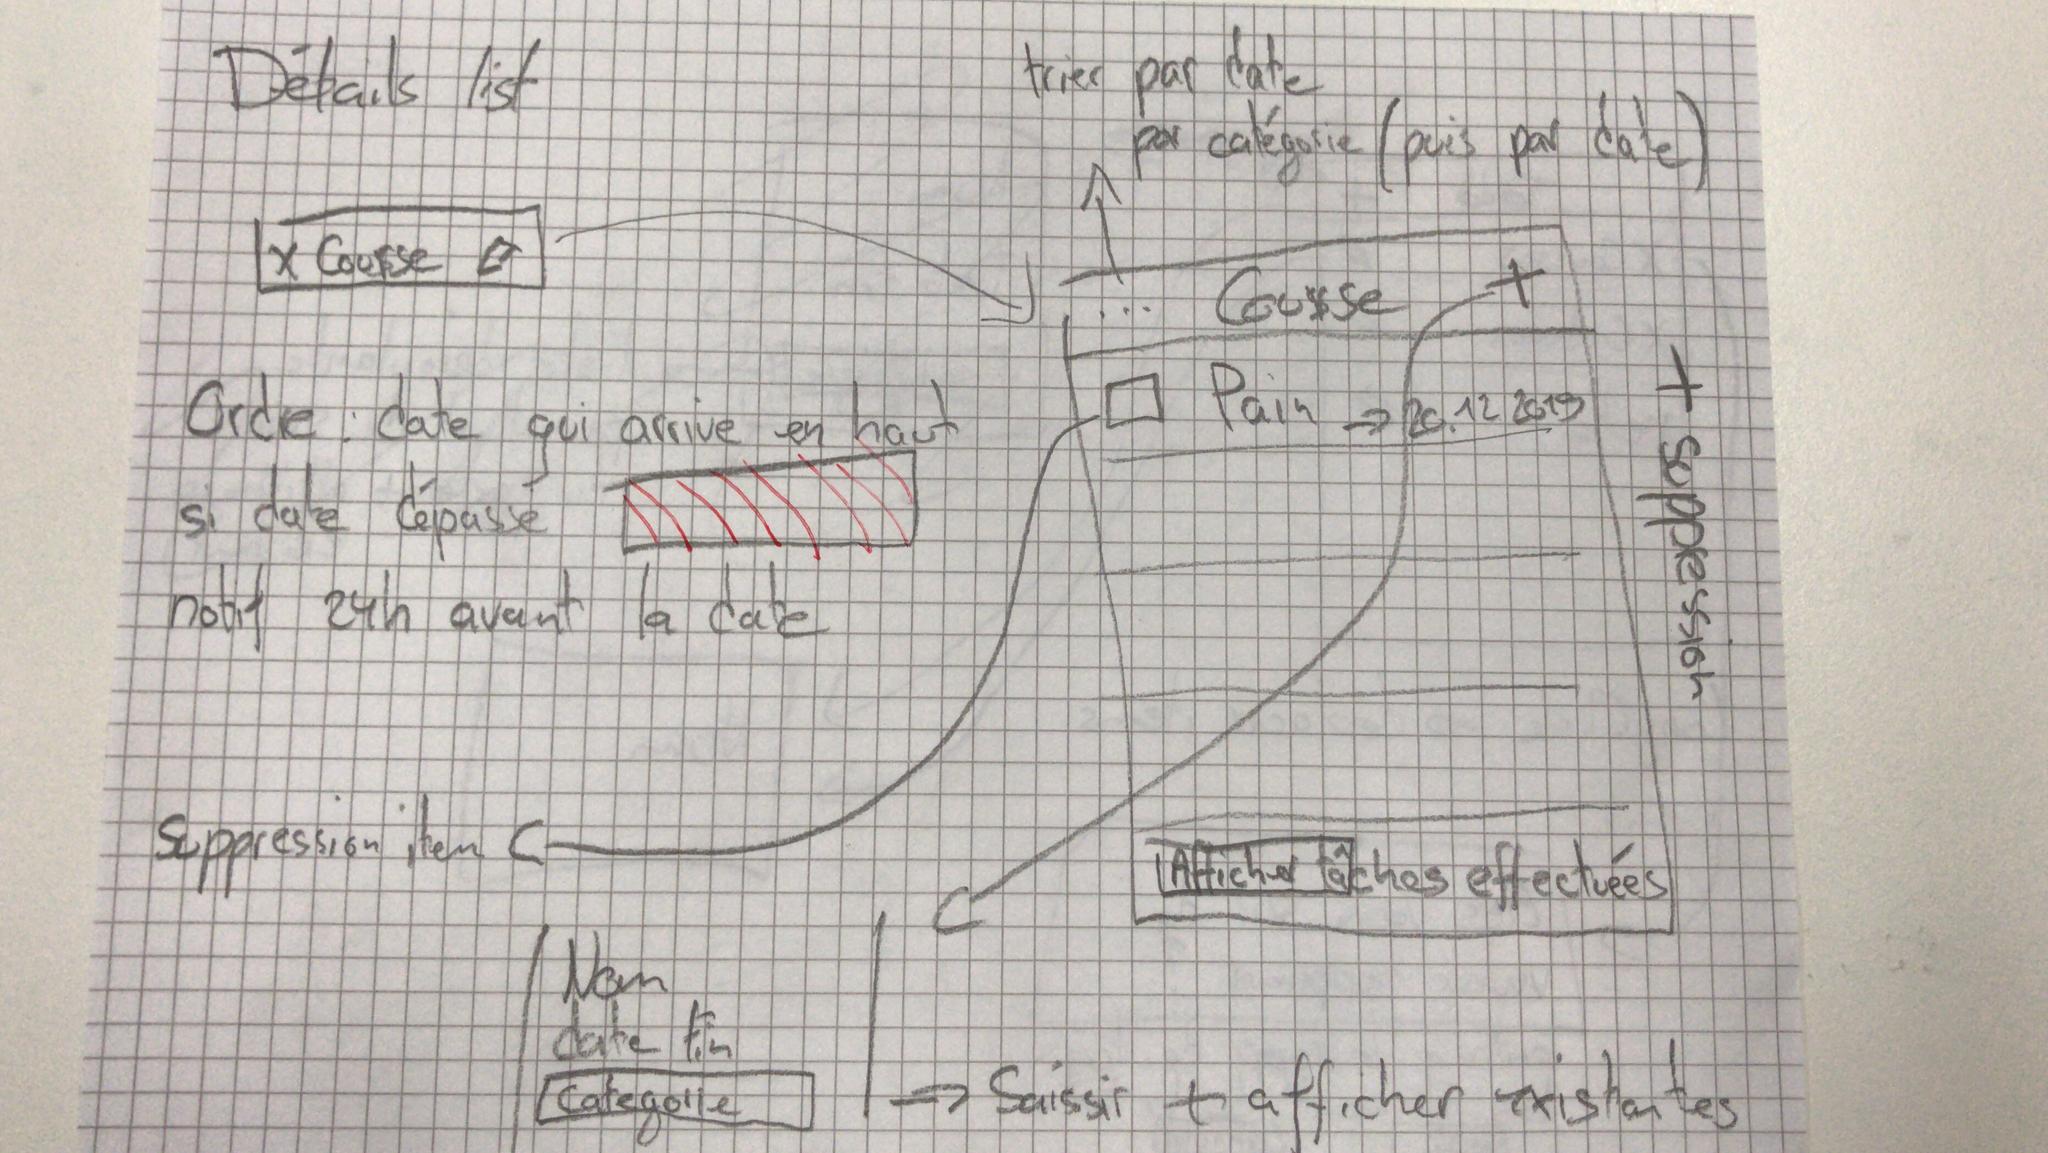 Détails list
trier par date
par catégorie (puis par date)
x Course
... Course +
Pain => 20.12 2019
+ suppression
Ordre : date qui arrive en haut
si date dépassé
notif 24h avant la date
Suppression item
Afficher tâches effectuées
Nom
date fin
Categorie
=> Saissir + afficher existantes